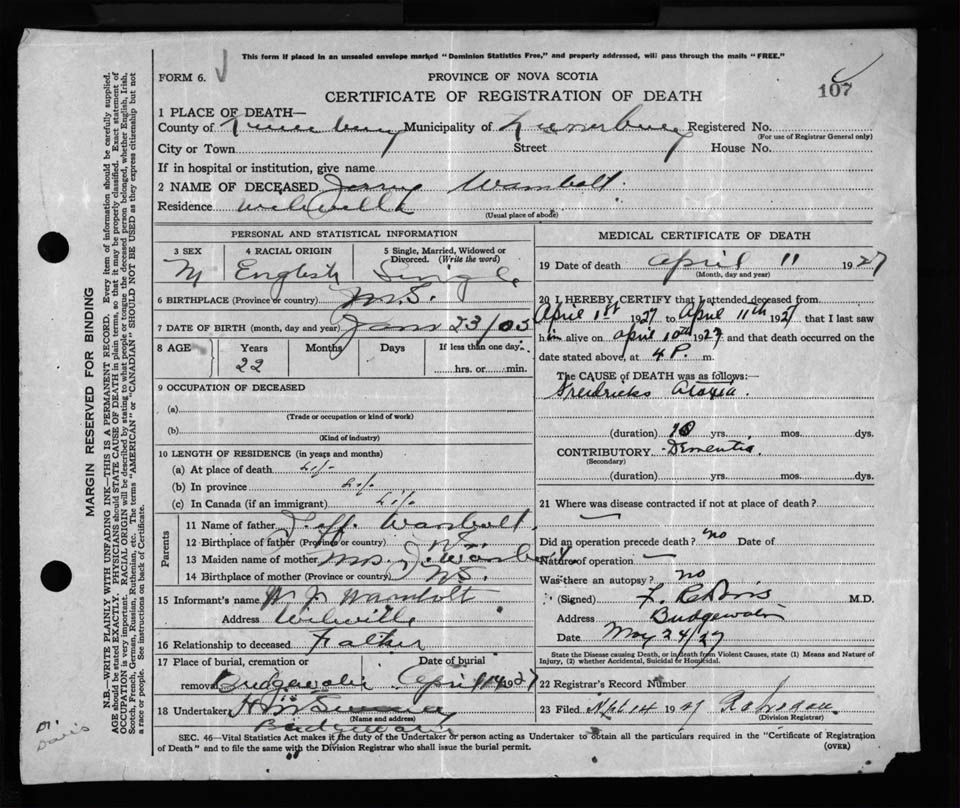 This form if placed in an unsealed envelope marked "Dominion Statistics Free," and properly addressed, will pass through the mails "FREE."
FORM 6.
PROVINCE OF NOVA SCOTIA
107
CERTIFICATE OF REGISTRATION OF DEATH
1 PLACE OF DEATH—
County of Lunenburg Municipality of Lunenburg Registered No.
(For use of Registrar General only)
City or Town Street House No.
If in hospital or institution, give name
2 NAME OF DECEASED Wambolt
Residence
(Usual place of abode)
PERSONAL AND STATISTICAL INFORMATION
3 SEX 4 RACIAL ORIGIN 5 Single, Married, Widowed or Divorced. (Write the word)
M English Single
6 BIRTHPLACE (Province or country) N.S.
7 DATE OF BIRTH (month, day and year) Jan 23/05
8 AGE Years Months Days If less than one day
22 hrs. or min.
9 OCCUPATION OF DECEASED
(a)
(Trade or occupation or kind of work)
(b)
(Kind of industry)
10 LENGTH OF RESIDENCE (in years and months)
(a) At place of death Life
(b) In province Life
(c) In Canada (if an immigrant) Life
Parents
11 Name of father Wambolt
12 Birthplace of father (Province or country) N.S.
13 Maiden name of mother Mrs. J. Wambolt
14 Birthplace of mother (Province or country) N.S.
15 Informant's name Wambolt
Address
16 Relationship to deceased Father
17 Place of burial, cremation or removal Date of burial
Bridgewater April 14 1927
18 Undertaker
(Name and address)
Bridgewater
MEDICAL CERTIFICATE OF DEATH
19 Date of death April 11 1927
(Month, day and year)
20 I HEREBY CERTIFY that I attended deceased from
April 1st 1927 to April 11th 1927 that I last saw
him alive on April 10th 1927 and that death occurred on the
date stated above, at 4 P. m.
The CAUSE of DEATH was as follows:
Freidricks Ataxia.
(duration) 10 yrs. mos. dys.
CONTRIBUTORY Dementia
(Secondary)
(duration) yrs. mos. dys.
21 Where was disease contracted if not at place of death?
Did an operation precede death? no Date of
Nature of operation
Was there an autopsy? no
(Signed) M.D.
Address Bridgewater
Date May 24/27
State the Disease causing Death, or in death from Violent Causes, state (1) Means and Nature of Injury, (2) whether Accidental, Suicidal or Homicidal.
22 Registrar's Record Number
23 Filed 14 1927
(Division Registrar)
SEC. 46—Vital Statistics Act makes it the duty of the Undertaker or person acting as Undertaker to obtain all the particulars required in the "Certificate of Registration
of Death" and to file the same with the Division Registrar who shall issue the burial permit.
(OVER)
MARGIN RESERVED FOR BINDING
N.B.—WRITE PLAINLY WITH UNFADING INK—THIS IS A PERMANENT RECORD. Every item of information should be carefully supplied.
AGE should be stated EXACTLY. PHYSICIANS should STATE CAUSE OF DEATH in plain terms, so that it may be properly classified. Exact statement of
OCCUPATION is very important. RACIAL ORIGIN will be described by stating to what people or tongue the deceased person belonged, whether English, Irish,
Scotch, French, German, Russian, Ruthenian, etc. The terms "AMERICAN" or "CANADIAN" SHOULD NOT BE USED as they express citizenship but not
a race or people. See instructions on back of Certificate.
Dr.
Davis